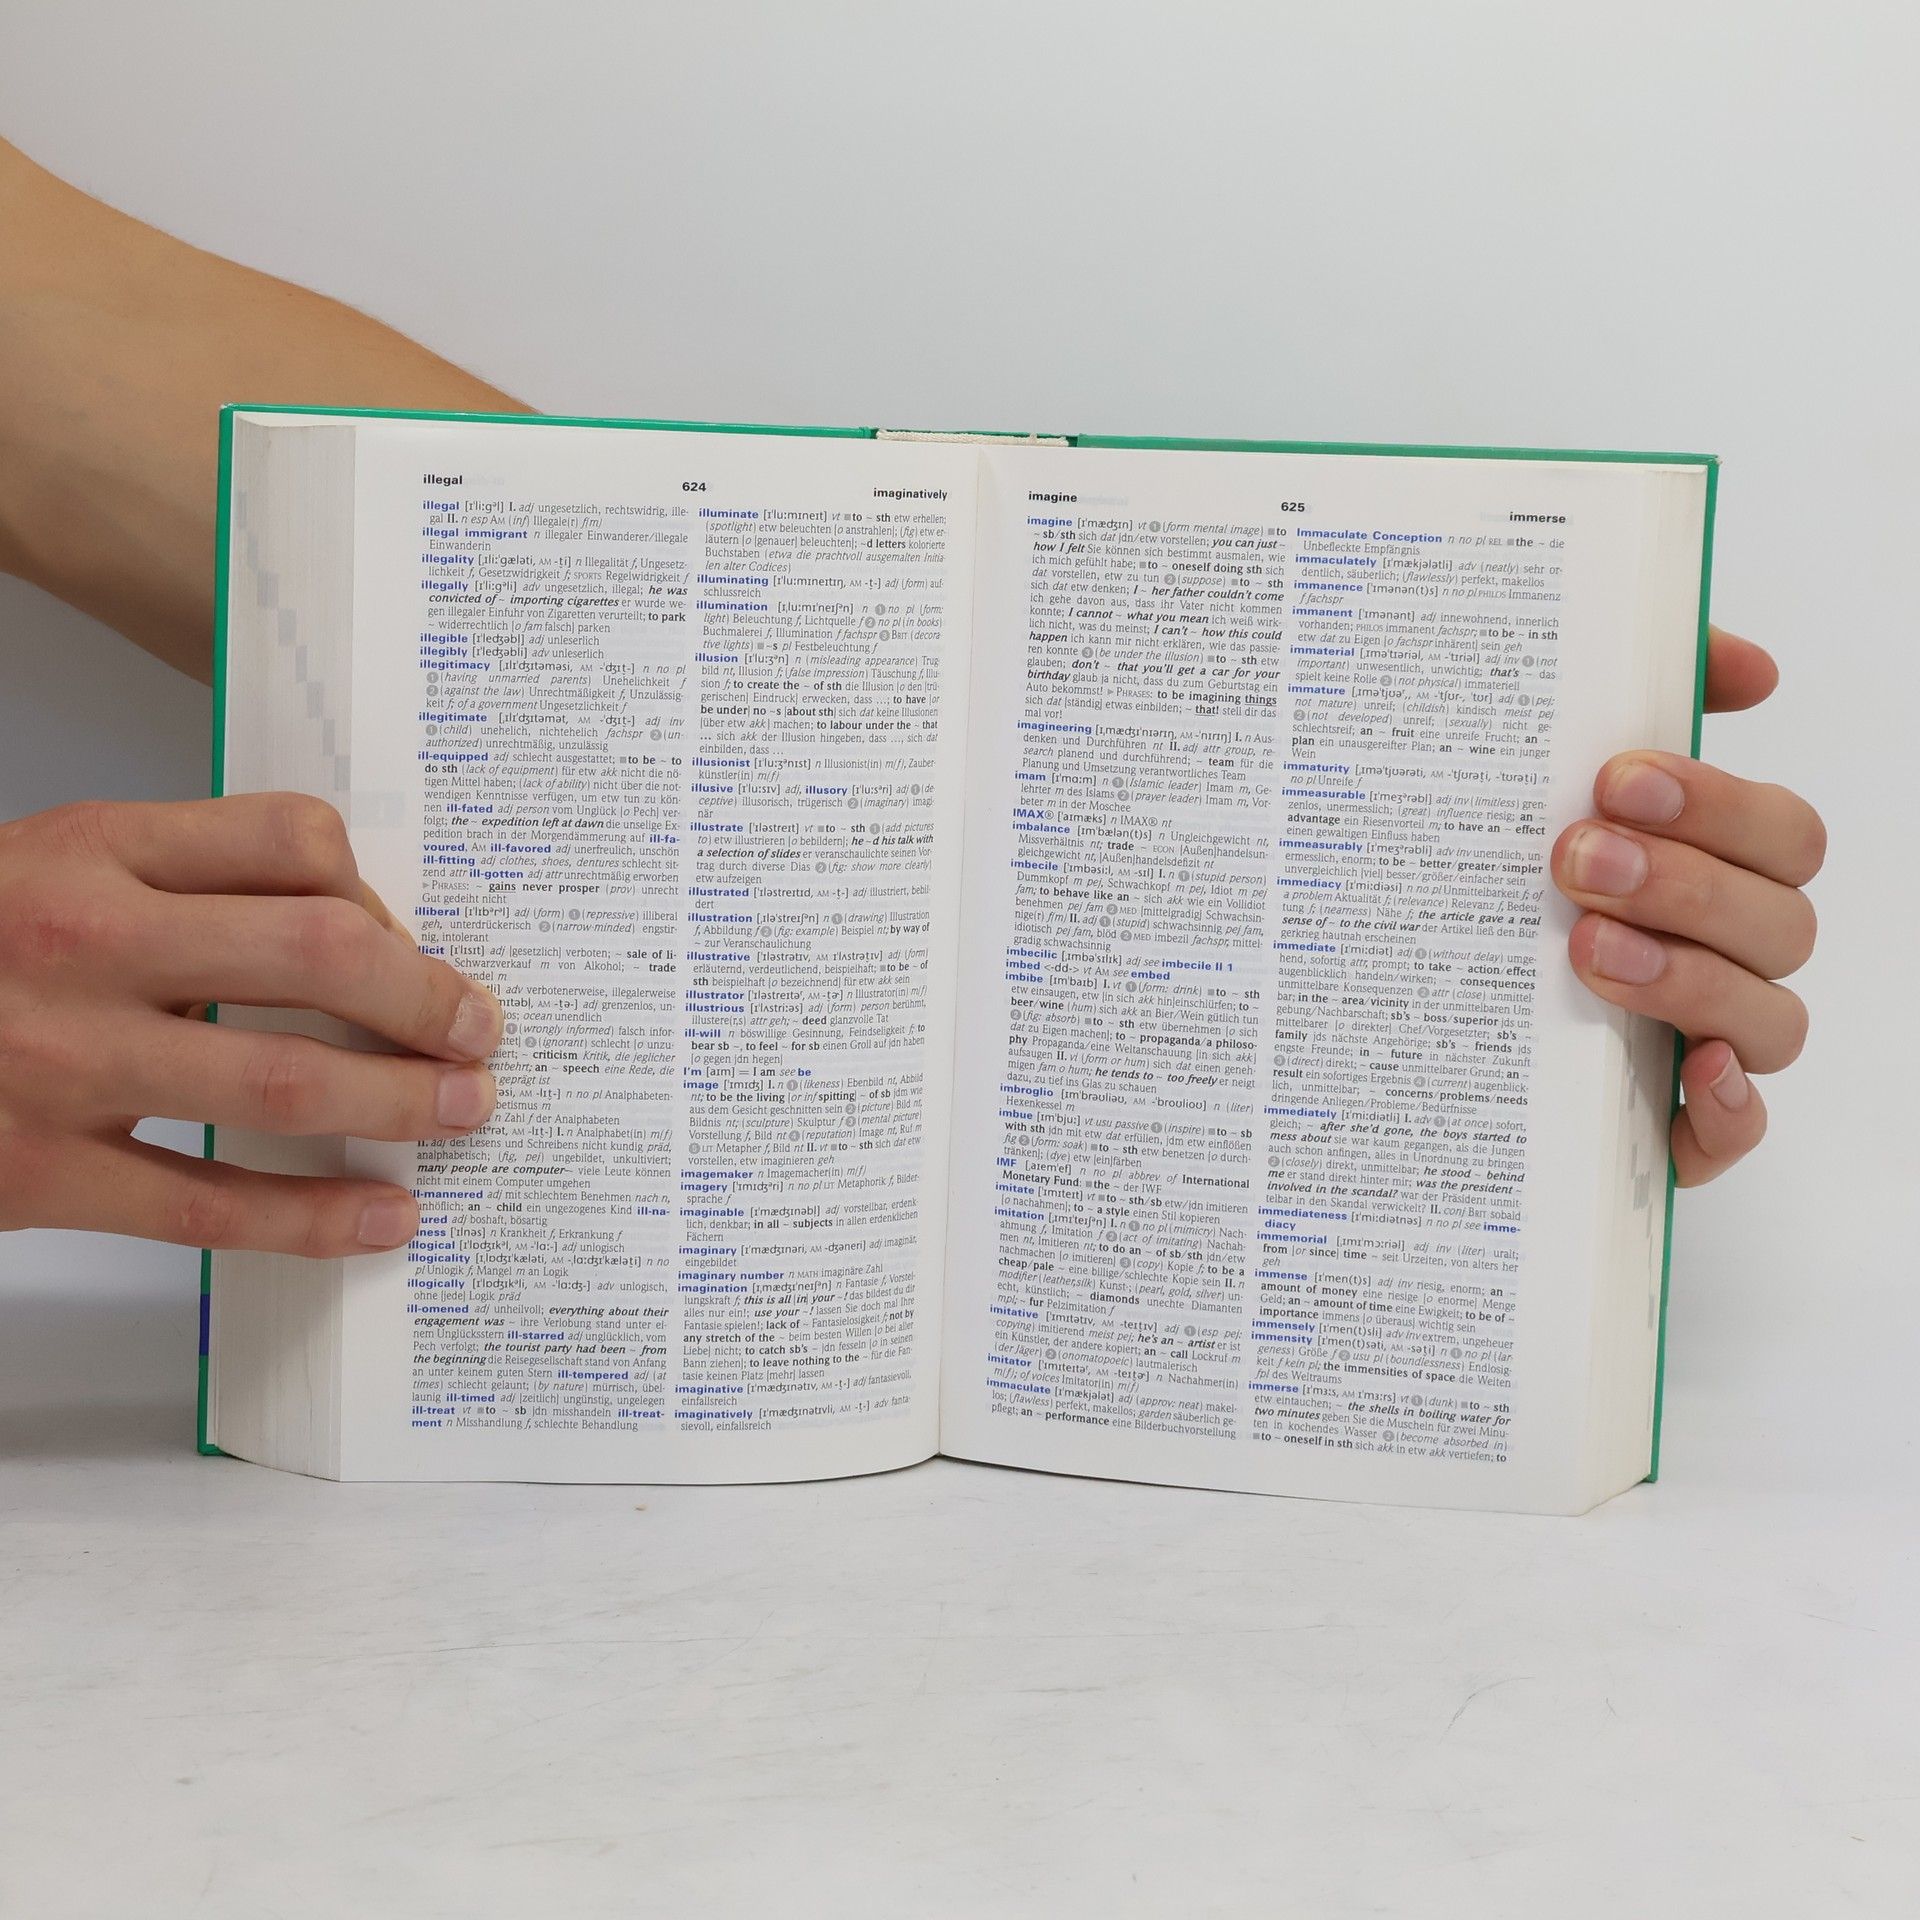 illegal
624
imaginatively
illegal [ɪˈliːgᵊl] I. adj ungesetzlich, rechtswidrig, ille-
gal II. n esp AM (inf) Illegale(r) f(m)
illegal immigrant n illegaler Einwanderer/illegale
Einwanderin
illegality [ˌɪliːˈgæləti, AM -t̬i] n Illegalität f, Ungesetz-
lichkeit f, Gesetzwidrigkeit f; SPORTS Regelwidrigkeit f
illegally [ɪˈliːgᵊli] adv ungesetzlich, illegal; he was
convicted of ~ importing cigarettes er wurde we-
gen illegaler Einfuhr von Zigaretten verurteilt; to park
~ widerrechtlich [o fam falsch] parken
illegible [ɪˈledʒəbl̩] adj unleserlich
illegibly [ɪˈledʒəbli] adv unleserlich
illegitimacy [ˌɪlɪˈdʒɪtəməsi, AM -ˈdʒɪt̬-] n no pl
❶ (having unmarried parents) Unehelichkeit f
❷ (against the law) Unrechtmäßigkeit f, Unzulässig-
keit f; of a government Ungesetzlichkeit f
illegitimate [ˌɪlɪˈdʒɪtəmət, AM -ˈdʒɪt̬-] adj inv
❶ (child) unehelich, nichtehelich fachspr ❷ (un-
authorized) unrechtmäßig, unzulässig
ill-equipped adj schlecht ausgestattet; ■to be ~ to
do sth (lack of equipment) für etw akk nicht die nö-
tigen Mittel haben; (lack of ability) nicht über die not-
wendigen Kenntnisse verfügen, um etw tun zu kön-
nen ill-fated adj person vom Unglück [o Pech] ver-
folgt; the ~ expedition left at dawn die unselige Ex-
pedition brach in der Morgendämmerung auf ill-fa-
voured, AM ill-favored adj unerfreulich, unschön
ill-fitting adj clothes, shoes, dentures schlecht sit-
zend attr ill-gotten adj attr unrechtmäßig erworben
▶ PHRASES: ~ gains never prosper (prov) unrecht
Gut gedeiht nicht
illiberal [ɪˈlɪbᵊrᵊl] adj (form) ❶ (repressive) illiberal
geh, unterdrückerisch ❷ (narrow-minded) engstir-
nig, intolerant
llicit [ɪˈlɪsɪt] adj [gesetzlich] verboten; ~ sale of li-
Schwarzverkauf m von Alkohol; ~ trade
handel m
adv verbotenerweise, illegalerweise
AM -t̬ə-] adj grenzenlos, un-
los; ocean unendlich
❶ (wrongly informed) falsch infor-
❷ (ignorant) schlecht [o unzu-
niert; ~ criticism Kritik, die jeglicher
entbehrt; an ~ speech eine Rede, die
geprägt ist
AM -lɪt̬-] n no pl Analphabeten-
betismus m
n Zahl f der Analphabeten
AM -lɪt̬-] I. n Analphabet(in) m(f)
II. adj des Lesens und Schreibens nicht kundig präd,
analphabetisch; (fig, pej) ungebildet, unkultiviert;
many people are computer-~ viele Leute können
nicht mit einem Computer umgehen
ill-mannered adj mit schlechtem Benehmen nach n,
unhöflich; an ~ child ein ungezogenes Kind ill-na-
ured adj boshaft, bösartig
lness [ˈɪlnəs] n Krankheit f, Erkrankung f
illogical [ɪˈlɒdʒɪkᵊl, AM -ˈlɑː-] adj unlogisch
illogicality [ɪˌlɒdʒɪˈkæləti, AM -ˌlɑːdʒɪˈkæləti̬] n no
pl Unlogik f, Mangel m an Logik
illogically [ɪˈlɒdʒɪkᵊli, AM -ˈlɑːdʒ-] adv unlogisch,
ohne [jede] Logik präd
ill-omened adj unheilvoll; everything about their
engagement was ~ ihre Verlobung stand unter ei-
nem Unglücksstern ill-starred adj unglücklich, vom
Pech verfolgt; the tourist party had been ~ from
the beginning die Reisegesellschaft stand von Anfang
an unter keinem guten Stern ill-tempered adj (at
times) schlecht gelaunt; (by nature) mürrisch, übel-
launig ill-timed adj [zeitlich] ungünstig, ungelegen
ill-treat vt ■to ~ sb jdn misshandeln ill-treat-
ment n Misshandlung f, schlechte Behandlung
illuminate [ɪˈluːmɪneɪt] vt ■to ~ sth etw erhellen;
(spotlight) etw beleuchten [o anstrahlen]; (fig) etw er-
läutern [o [genauer] beleuchten]; ~d letters kolorierte
Buchstaben (etwa die prachtvoll ausgemalten Initia-
len alter Codices)
illuminating [ɪˈluːmɪneɪtɪŋ, AM -t̬-] adj (form) auf-
schlussreich
illumination [ɪˌluːmɪˈneɪʃᵊn] n ❶ no pl (form:
light) Beleuchtung f, Lichtquelle f ❷ no pl (in books)
Buchmalerei f, Illumination f fachspr ❸ BRIT (decora-
tive lights) ■~s pl Festbeleuchtung f
illusion [ɪˈluːʒᵊn] n (misleading appearance) Trug-
bild nt, Illusion f; (false impression) Täuschung f, Illu-
sion f; to create the ~ of sth die Illusion [o den [trü-
gerischen] Eindruck] erwecken, dass ...; to have [or
be under] no ~s [about sth] sich dat keine Illusionen
[über etw akk] machen; to labour under the ~ that
... sich akk der Illusion hingeben, dass ..., sich dat
einbilden, dass ...
illusionist [ɪˈluːʒᵊnɪst] n Illusionist(in) m(f), Zauber-
künstler(in) m(f)
illusive [ɪˈluːsɪv] adj, illusory [ɪˈluːsᵊri] adj ❶ (de-
ceptive) illusorisch, trügerisch ❷ (imaginary) imagi-
när
illustrate [ˈɪləstreɪt] vt ■to ~ sth ❶ (add pictures
to) etw illustrieren [o bebildern]; he ~d his talk with
a selection of slides er veranschaulichte seinen Vor-
trag durch diverse Dias ❷ (fig: show more clearly)
etw aufzeigen
illustrated [ˈɪləstreɪtɪd, AM -t̬-] adj illustriert, bebil-
dert
illustration [ˌɪləˈstreɪʃᵊn] n ❶ (drawing) Illustration
f, Abbildung f ❷ (fig: example) Beispiel nt; by way of
~ zur Veranschaulichung
illustrative [ˈɪləstrətɪv, AM ɪˈlʌstrət̬ɪv] adj (form)
erläuternd, verdeutlichend, beispielhaft; ■to be ~ of
sth beispielhaft [o bezeichnend] für etw akk sein
illustrator [ˈɪləstreɪtəʳ, AM -t̬ɚ] n Illustrator(in) m(f)
illustrious [ɪˈlʌstriːəs] adj (form) person berühmt,
illustere(r,s) attr geh; ~ deed glanzvolle Tat
ill-will n böswillige Gesinnung, Feindseligkeit f; to
bear sb ~, to feel ~ for sb einen Groll auf jdn haben
[o gegen jdn hegen]
I'm [aɪm] = I am see be
image [ˈɪmɪdʒ] I. n ❶ (likeness) Ebenbild nt, Abbild
nt; to be the living [or inf spitting] ~ of sb jdm wie
aus dem Gesicht geschnitten sein ❷ (picture) Bild nt,
Bildnis nt; (sculpture) Skulptur f ❸ (mental picture)
Vorstellung f, Bild nt ❹ (reputation) Image nt, Ruf m
❺ LIT Metapher f, Bild nt II. vt ■to ~ sth sich dat etw
vorstellen, etw imaginieren geh
imagemaker n Imagemacher(in) m(f)
imagery [ˈɪmɪdʒᵊri] n no pl LIT Metaphorik f, Bilder-
sprache f
imaginable [ɪˈmædʒɪnəbl̩] adj vorstellbar, erdenk-
lich, denkbar; in all ~ subjects in allen erdenklichen
Fächern
imaginary [ɪˈmædʒɪnəri, AM -dʒəneri] adj imaginär,
eingebildet
imaginary number n MATH imaginäre Zahl
imagination [ɪˌmædʒɪˈneɪʃᵊn] n Fantasie f, Vorstel-
lungskraft f; this is all [in] your ~! das bildest du dir
alles nur ein!; use your ~! lassen Sie doch mal Ihre
Fantasie spielen!; lack of ~ Fantasielosigkeit f; not by
any stretch of the ~ beim besten Willen [o bei aller
Liebe] nicht; to catch sb's ~ jdn fesseln [o in seinen
Bann ziehen]; to leave nothing to the ~ für die Fan-
tasie keinen Platz [mehr] lassen
imaginative [ɪˈmædʒɪnətɪv, AM -t̬-] adj fantasievoll,
einfallsreich
imaginatively [ɪˈmædʒɪnətɪvli, AM -t̬-] adv fanta-
sievoll, einfallsreich
imagine
625
immerse
imagine [ɪˈmædʒɪn] vt ❶ (form mental image) ■to
~ sb/sth sich dat jdn/etw vorstellen; you can just ~
how I felt Sie können sich bestimmt ausmalen, wie
ich mich gefühlt habe; ■to ~ oneself doing sth sich
dat vorstellen, etw zu tun ❷ (suppose) ■to ~ sth
sich dat etw denken; I ~ her father couldn't come
ich gehe davon aus, dass ihr Vater nicht kommen
konnte; I cannot ~ what you mean ich weiß wirk-
lich nicht, was du meinst; I can't ~ how this could
happen ich kann mir nicht erklären, wie das passie-
ren konnte ❸ (be under the illusion) ■to ~ sth etw
glauben; don't ~ that you'll get a car for your
birthday glaub ja nicht, dass du zum Geburtstag ein
Auto bekommst! ▶ PHRASES: to be imagining things
sich dat [ständig] etwas einbilden; ~ that! stell dir das
mal vor!
imagineering [ɪˌmædʒɪˈnɪərɪŋ, AM -ˈnɪrɪŋ] I. n Aus-
denken und Durchführen nt II. adj attr group, re-
search planend und durchführend; ~ team für die
Planung und Umsetzung verantwortliches Team
imam [ɪˈmɑːm] n ❶ (Islamic leader) Imam m, Ge-
lehrter m des Islams ❷ (prayer leader) Imam m, Vor-
beter m in der Moschee
IMAX® [ˈaɪmæks] n IMAX® nt
imbalance [ɪmˈbælən(t)s] n Ungleichgewicht nt,
Missverhältnis nt; trade ~ ECON [Außen]handelsun-
gleichgewicht nt, [Außen]handelsdefizit nt
imbecile [ˈɪmbəsiːl, AM -sɪl] I. n ❶ (stupid person)
Dummkopf m pej, Schwachkopf m pej, Idiot m pej
fam; to behave like an ~ sich akk wie ein Vollidiot
benehmen pej fam ❷ MED [mittelgradig] Schwachsin-
nige(r) f(m) II. adj ❶ (stupid) schwachsinnig pej fam,
idiotisch pej fam, blöd ❷ MED imbezil fachspr, mittel-
gradig schwachsinnig
imbecilic [ˌɪmbəˈsɪlɪk] adj see imbecile II 1
imbed <-dd-> vt AM see embed
imbibe [ɪmˈbaɪb] I. vt ❶ (form: drink) ■to ~ sth
etw einsaugen, etw [in sich akk hin]einschlürfen; to ~
beer/wine (hum) sich akk an Bier/Wein gütlich tun
❷ (fig: absorb) ■to ~ sth etw übernehmen [o sich
dat zu Eigen machen]; to ~ propaganda/a philoso-
phy Propaganda/eine Weltanschauung [in sich akk]
aufsaugen II. vi (form or hum) sich dat einen geneh-
migen fam o hum; he tends to ~ too freely er neigt
dazu, zu tief ins Glas zu schauen
imbroglio [ɪmˈbrəʊliəʊ, AM -ˈbroʊlioʊ] n (liter)
Hexenkessel m
imbue [ɪmˈbjuː] vt usu passive ❶ (inspire) ■to ~ sb
with sth jdn mit etw dat erfüllen, jdm etw einflößen
fig ❷ (form: soak) ■to ~ sth etw benetzen [o durch-
tränken]; (dye) etw [ein]färben
IMF [ˌaɪemˈef] n no pl abbrev of International
Monetary Fund: ■the ~ der IWF
imitate [ˈɪmɪteɪt] vt ■to ~ sth/sb etw/jdn imitieren
[o nachahmen]; to ~ a style einen Stil kopieren
imitation [ˌɪmɪˈteɪʃᵊn] I. n ❶ no pl (mimicry) Nach-
ahmung f, Imitation f ❷ (act of imitating) Nachah-
men nt, Imitieren nt; to do an ~ of sb/sth jdn/etw
nachmachen [o imitieren] ❸ (copy) Kopie f; to be a
cheap/pale ~ eine billige/schlechte Kopie sein II. n
modifier (leather,silk) Kunst-; (pearl, gold, silver) un-
echt, künstlich; ~ diamonds unechte Diamanten
mpl; ~ fur Pelzimitation f
imitative [ˈɪmɪtətɪv, AM -teɪt̬ɪv] adj ❶ (esp pej:
copying) imitierend meist pej; he's an ~ artist er ist
ein Künstler, der andere kopiert; an ~ call Lockruf m
(der Jäger) ❷ (onomatopoeic) lautmalerisch
imitator [ˈɪmɪteɪtəʳ, AM -teɪt̬ɚ] n Nachahmer(in)
m(f); of voices Imitator(in) m(f)
immaculate [ɪˈmækjələt] adj (approv: neat) makel-
los; (flawless) perfekt, makellos; garden säuberlich ge-
pflegt; an ~ performance eine Bilderbuchvorstellung
Immaculate Conception n no pl REL ■the ~ die
Unbefleckte Empfängnis
immaculately [ɪˈmækjələtli] adv (neatly) sehr or-
dentlich, säuberlich; (flawlessly) perfekt, makellos
immanence [ˈɪmənən(t)s] n no pl PHILOS Immanenz
f fachspr
immanent [ˈɪmənənt] adj innewohnend, innerlich
vorhanden; PHILOS immanent fachspr; ■to be ~ in sth
etw dat zu Eigen [o fachspr inhärent] sein geh
immaterial [ˌɪməˈtɪəriəl, AM -ˈtɪriəl] adj inv ❶ (not
important) unwesentlich, unwichtig; that's ~ das
spielt keine Rolle ❷ (not physical) immateriell
immature [ˌɪməˈtjʊəʳ,, AM -ˈtʃʊr-, ˈtʊr] adj ❶ (pej:
not mature) unreif; (childish) kindisch meist pej
❷ (not developed) unreif; (sexually) nicht ge-
schlechtsreif; an ~ fruit eine unreife Frucht; an ~
plan ein unausgereifter Plan; an ~ wine ein junger
Wein
immaturity [ˌɪməˈtjʊərəti, AM -ˈtʃʊrəti̬, -ˈtʊrəti̬] n
no pl Unreife f
immeasurable [ɪˈmeʒᵊrəbl̩] adj inv (limitless) gren-
zenlos, unermesslich; (great) influence riesig; an ~
advantage ein Riesenvorteil m; to have an ~ effect
einen gewaltigen Einfluss haben
immeasurably [ɪˈmeʒᵊrəbli] adv inv unendlich, un-
ermesslich, enorm; to be ~ better/greater/simpler
unvergleichlich [viel] besser/größer/einfacher sein
immediacy [ɪˈmiːdiəsi] n no pl Unmittelbarkeit f; of
a problem Aktualität f; (relevance) Relevanz f, Bedeu-
tung f; (nearness) Nähe f; the article gave a real
sense of ~ to the civil war der Artikel ließ den Bür-
gerkrieg hautnah erscheinen
immediate [ɪˈmiːdiət] adj ❶ (without delay) umge-
hend, sofortig attr, prompt; to take ~ action/effect
augenblicklich handeln/wirken; ~ consequences
unmittelbare Konsequenzen ❷ attr (close) unmittel-
bar; in the ~ area/vicinity in der unmittelbaren Um-
gebung/Nachbarschaft; sb's ~ boss/superior jds un-
mittelbarer [o direkter] Chef/Vorgesetzter; sb's ~
family jds nächste Angehörige; sb's ~ friends jds
engste Freunde; in ~ future in nächster Zukunft
❸ (direct) direkt; ~ cause unmittelbarer Grund; an ~
result ein sofortiges Ergebnis ❹ (current) augenblick-
lich, unmittelbar; ~ concerns/problems/needs
dringende Anliegen/Probleme/Bedürfnisse
immediately [ɪˈmiːdiətli] I. adv ❶ (at once) sofort,
gleich; ~ after she'd gone, the boys started to
mess about sie war kaum gegangen, als die Jungen
auch schon anfingen, alles in Unordnung zu bringen
❷ (closely) direkt, unmittelbar; he stood ~ behind
me er stand direkt hinter mir; was the president ~
involved in the scandal? war der Präsident unmit-
telbar in den Skandal verwickelt? II. conj BRIT sobald
immediateness [ɪˈmiːdiətnəs] n no pl see imme-
diacy
immemorial [ˌɪmɪˈmɔːriəl] adj inv (liter) uralt;
from [or since] time ~ seit Urzeiten, von alters her
geh
immense [ɪˈmen(t)s] adj inv riesig, enorm; an ~
amount of money eine riesige [o enorme] Menge
Geld; an ~ amount of time eine Ewigkeit; to be of ~
importance immens [o überaus] wichtig sein
immensely [ɪˈmen(t)sli] adv inv extrem, ungeheuer
immensity [ɪˈmen(t)səti, AM -səti̬] n ❶ no pl (lar-
geness) Größe f ❷ usu pl (boundlessness) Endlosig-
keit f kein pl; the immensities of space die Weiten
fpl des Weltraums
immerse [ɪˈmɜːs, AM ɪˈmɜːrs] vt ❶ (dunk) ■to ~ sth
etw eintauchen; ~ the shells in boiling water for
two minutes geben Sie die Muscheln für zwei Minu-
ten in kochendes Wasser ❷ (become absorbed in)
■to ~ oneself in sth sich akk in etw akk vertiefen; to